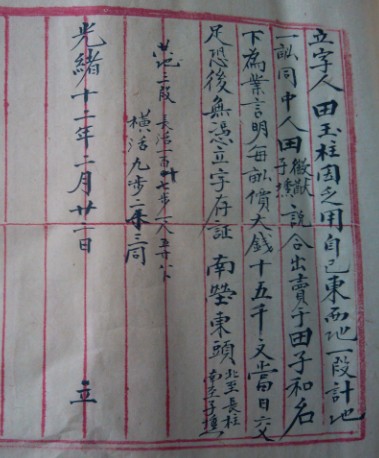 立字人田玉柱因乏用自己東西地一段計地
一畝同中人田徵猷子標說合出賣于田子和名
下為業言明每畝價大錢十五千文當日交
足恐後無憑立字存証 南塋東頭北至長柱南至子標
此地二段 長活一百卄七步 一八五廿八卜
橫活九步二禾三同
光緒十二年二月廿二日 立